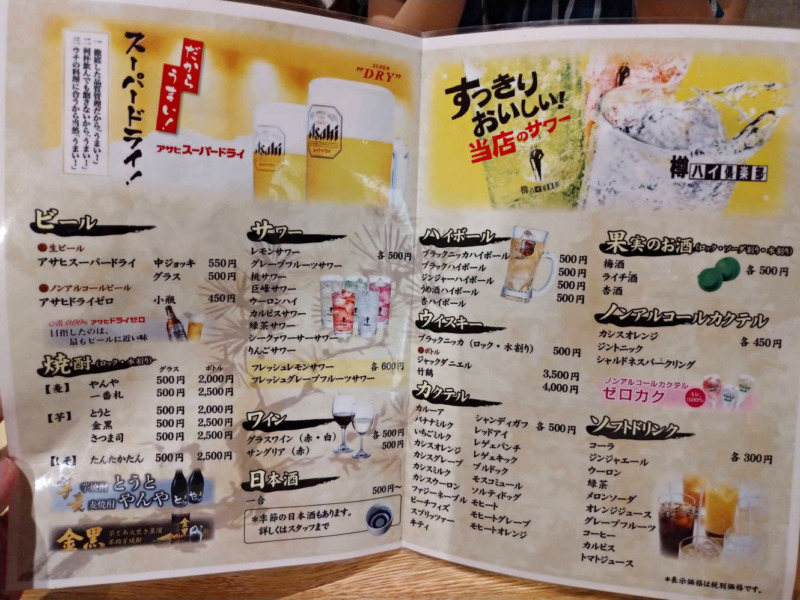 一 徹底した品質管理だから、うまい！
二 何杯飲んでも飽きないから、うまい！
三 ウチの料理に合うから当然、うまい！
スーパードライ！
だから
うまい！
アサヒスーパードライ
SUPER
"DRY"
Asahi
Asahi
ビール
●生ビール
アサヒスーパードライ 中ジョッキ 550円
グラス 500円
●ノンアルコールビール
アサヒドライゼロ 小瓶 450円
Alc.0.00% アサヒドライゼロ
目指したのは、
最もビールに近い味
焼酎（ロック・水割り）
グラス ボトル
【麦】 やんや 500円 2,000円
一番札 500円 2,500円
【芋】 とうと 500円 2,000円
金黒 500円 2,500円
さつま司 500円 2,500円
たんたかたん 500円 2,500円
芋焼酎 とうと
麦焼酎 やんや
金黒
サワー
レモンサワー 各500円
グレープフルーツサワー
桃サワー
巨峰サワー
ウーロンハイ
カルピスサワー
緑茶サワー
シークァーサーサワー
りんごサワー
フレッシュレモンサワー 各600円
フレッシュグレープフルーツサワー
ワイン
グラスワイン（赤・白） 各500円
サングリア（赤） 500円
日本酒
一合 500円～
＊季節の日本酒もあります。
詳しくはスタッフまで
すっきり
おいしい！
当店のサワー
樽ハイ倶楽部
ハイボール
ブラックニッカハイボール 500円
ブラックハイボール 500円
ジンジャーハイボール 500円
うめ酒ハイボール 500円
杏ハイボール 500円
ウイスキー
ブラックニッカ（ロック・水割り） 500円
●ボトル
ジャックダニエル 3,500円
竹鶴 4,000円
カクテル
カルーア
バナナミルク
いちごミルク
カシスオレンジ
カシスグレープ
カシスミルク
カシスウーロン
ファジーネーブル
ピーチフィズ
スプリッツァー
キティ
シャンディガフ 各500円
レッドアイ
レゲェパンチ
レゲェキック
ブルドッグ
モスコミュール
ソルティドッグ
モヒート
モヒートグレープ
モヒートオレンジ
果実のお酒（ロック・ソーダ割り・水割）
梅酒 各500円
ライチ酒
杏酒
ノンアルコールカクテル
カシスオレンジ 各450円
ジントニック
シャルドネスパークリング
ノンアルコールカクテル
ゼロカク
Alc.
0.00%
ソフトドリンク
コーラ 各300円
ジンジャエール
ウーロン
緑茶
メロンソーダ
オレンジジュース
グレープフルーツ
コーヒー
カルピス
トマトジュース
＊表示価格は税別価格です。